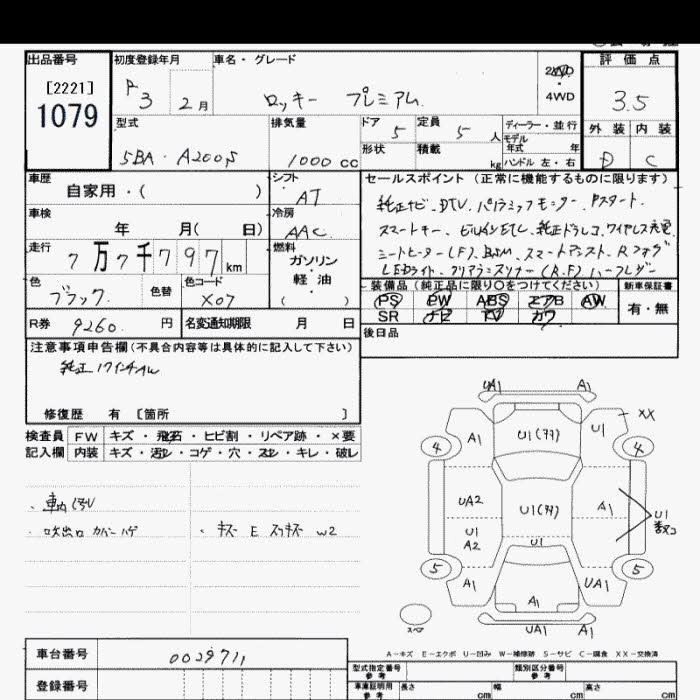 出品番号
[2221]
1079
初度登録年月
R 3 2月
車名・グレード
ロッキー プレミアム
2WD
・
4WD
評価点
3.5
外装 内装
D C
型式
5BA-A200S
排気量
1000 cc
ドア 5
定員 5 人
形状
積載 kg
ディーラー・並行
モデル年式 年
ハンドル 左・右
車歴
自家用・( )
シフト
AT
車検
年 月( 日)
冷房
AAC
走行
7万7千797km
燃料
ガソリン
軽油
( )
色
ブラック
色替
色コード
X07
R券 9260 円
名変通知期限 月 日
セールスポイント (正常に機能するものに限ります)
純正ナビ、DTV、パノラミックモニター、Pスタート
スマートキー、ビルトインETC、純正ドラレコ、ワイヤレス充電
シートヒーター(F)、BSM、スマートアシスト、Rフォグ
LEDライト、クリアランスソナー(R.F)
装備品 (純正品に限り〇をつけてください)
新車保証書
PS PW ABS エアB AW
SR ナビ TV カワ
有・無
後日品
注意事項申告欄 (不具合内容等は具体的に記入して下さい)
純正17インチAW
修復歴 有 [箇所 ]
検査員
記入欄
FW キズ・飛石・ヒビ割・リペア跡・×要
内装 キズ・汚レ・コゲ・穴・スレ・キレ・破レ
・吹出口カバーハゲ
・キズ E スリキズ W2
UA1 A1
XX
4 A1 U1(アタ) U1 4
UA2 U1(アタ) A1 U1
U1
A2
U1
5 A1 A1 UA1 5
スペア
UA1 A1
A-キズ E-エクボ U-凹み W-補修跡 S-サビ C-腐食 XX-交換済
車台番号 0029711
登録番号
型式指定番号
参考
類別区分番号
車庫証明用
参考
長さ cm
幅 cm
高さ cm